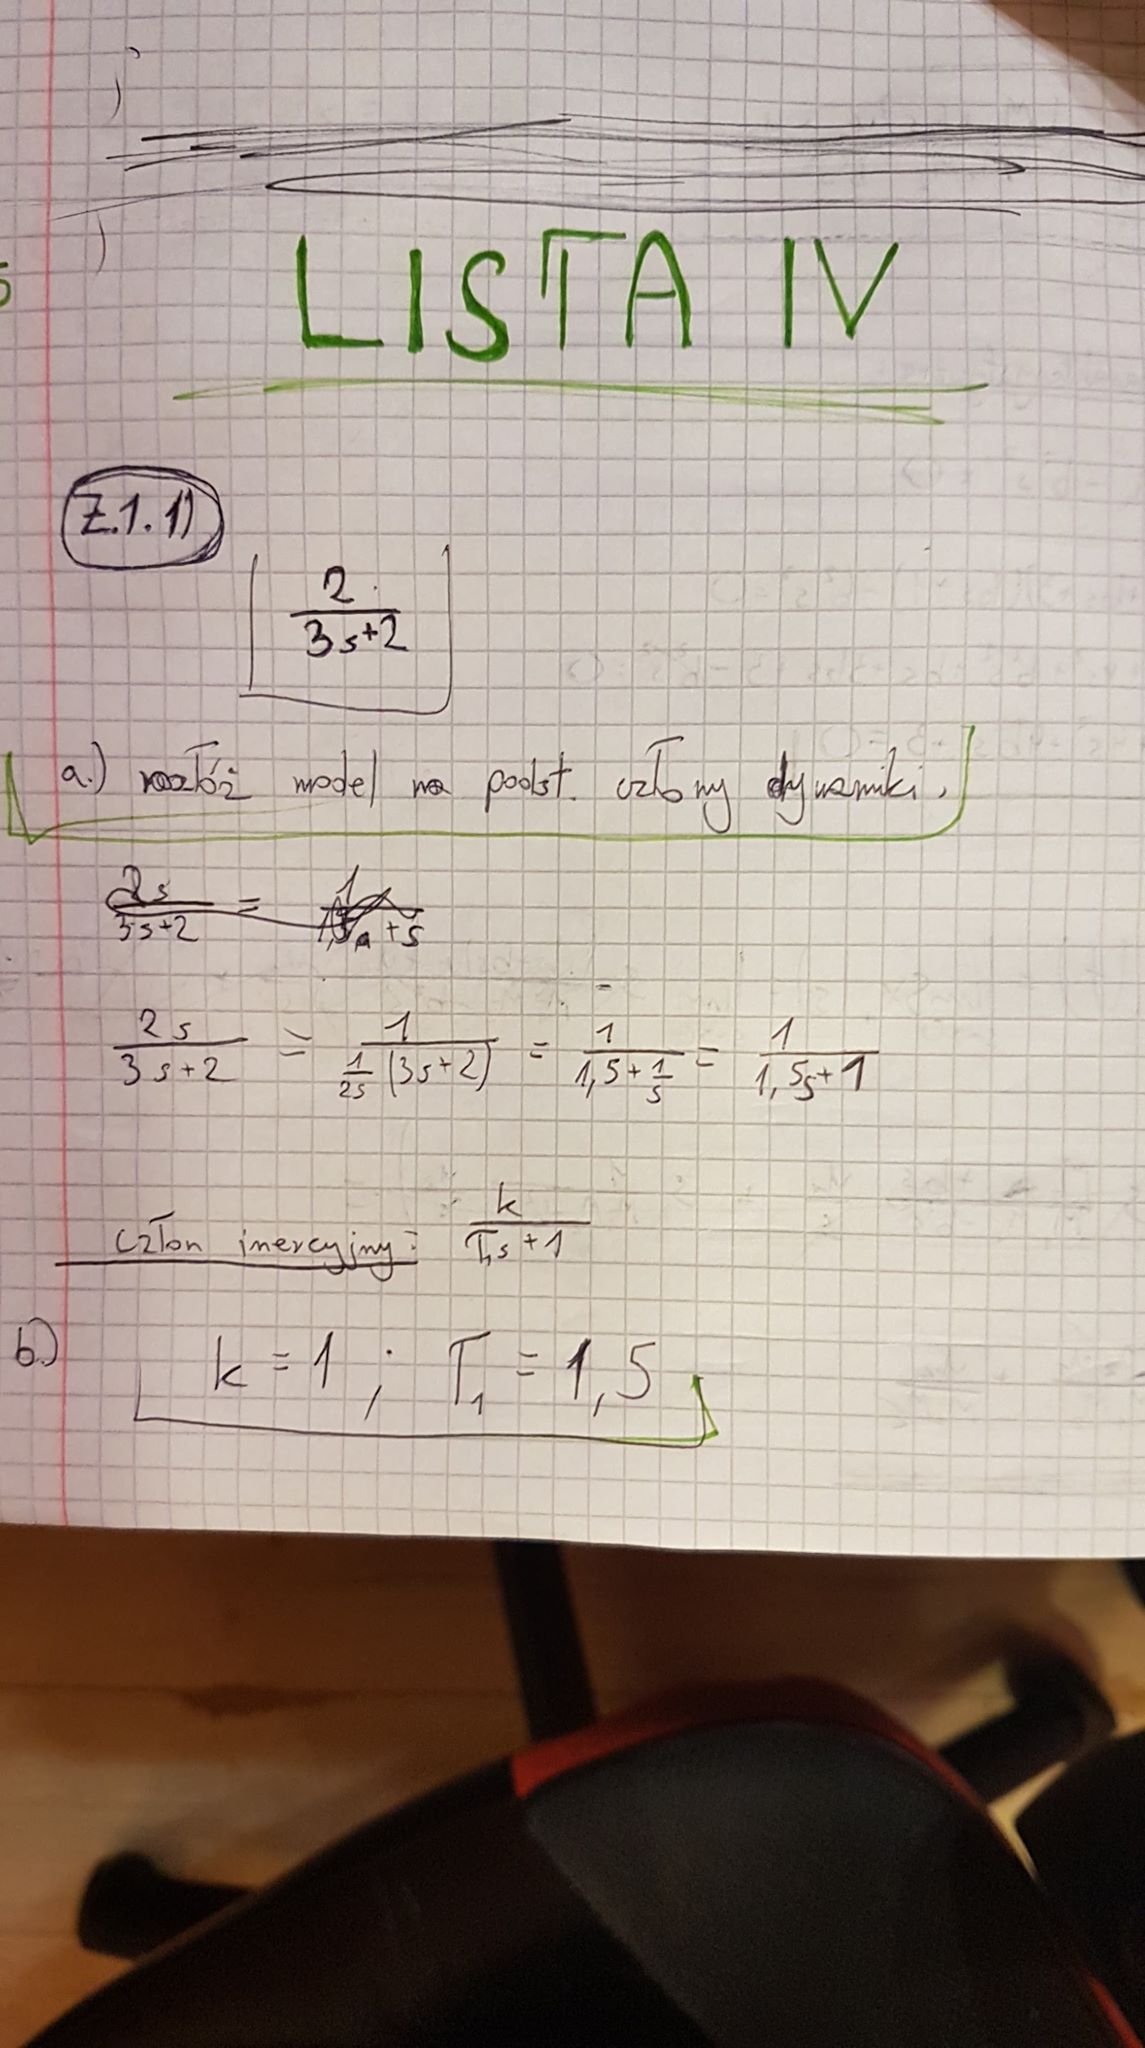 LISTA IV
Z.1.1)
2
3s+2
a.) rozłóż model na podst. człony dynamiki.
2s/3s+2 =
2s/3s+2 = 1/(1/2s (3s+2)) = 1/(1,5+1/s) = 1/(1,5s+1)
człon inercyjny: k/(T₁s+1)
b.) k=1 ; T₁=1,5